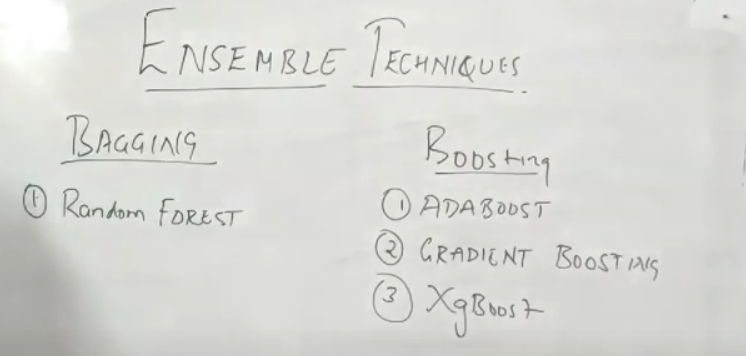 ENSEMBLE TECHNIQUES
BAGGING
① Random FOREST
Boosting
① ADABOOST
② GRADIENT BOOSTING
③ XgBoost